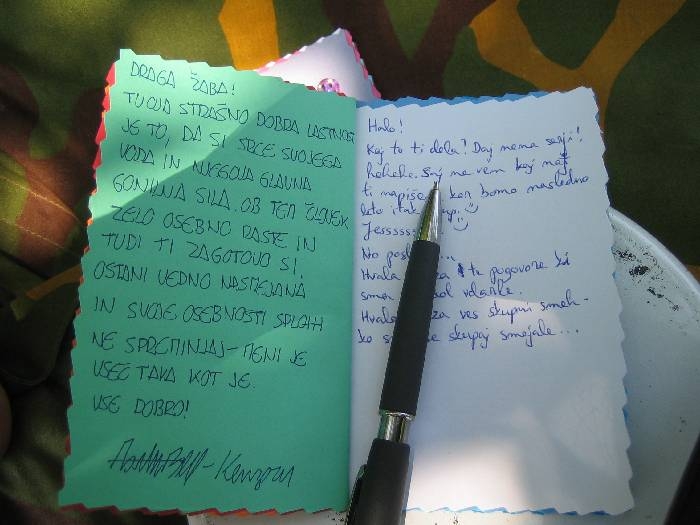 DRAGA ŽABA!
TVOJA STRAŠNO DOBRA LASTNOST
JE TO, DA SI SRCE SVOJEGA
VODA IN NJEGOVA GLAVNA
GONILNA SILA. OB TEM ČLOVEK
ZELO OSEBNO RASTE IN
TUDI TI ZAGOTOVO SI.
OSTANI VEDNO NASMEJANA
IN SVOJE OSEBNOSTI SPLOHH
NE SPREMINJAJ - MENI JE
VŠEČ TAKA KOT JE.
VSE DOBRO!
Halo!
Kaj to ti dela? Daj nema serji!
hehehe. Saj ne vem kaj naj
ti napiše ker bomo nasledno
leto itak
Jesssss
No
Hvala za te pogovore ki
smo
Hvala za ves skupni smeh-
ko se skupaj smejale...